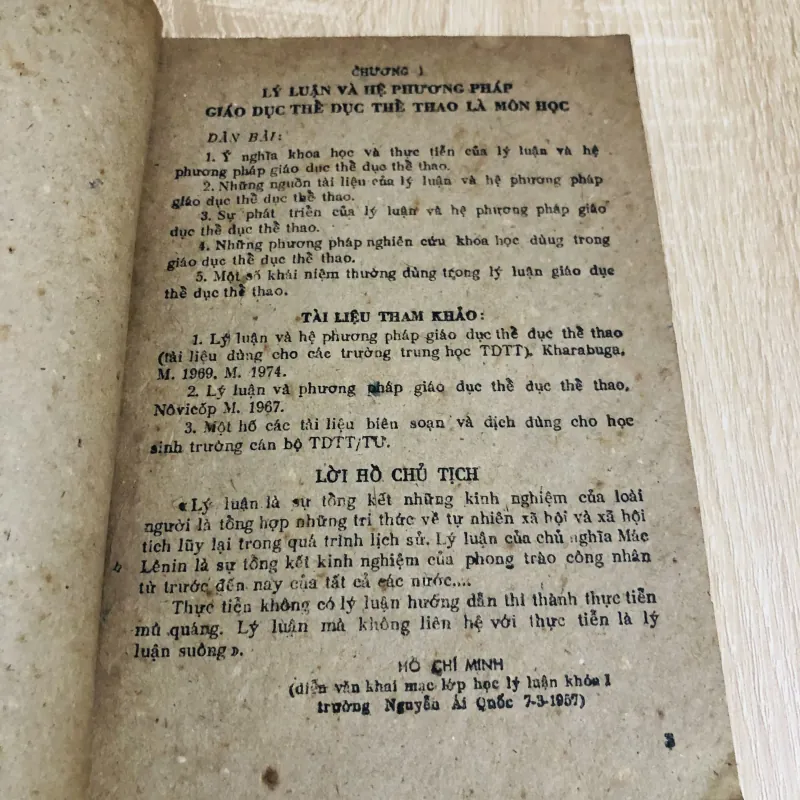 CHƯƠNG 1
LÝ LUẬN VÀ HỆ PHƯƠNG PHÁP
GIÁO DỤC THỂ DỤC THỂ THAO LÀ MÔN HỌC
DÀN BÀI:
1. Ý nghĩa khoa học và thực tiễn của lý luận và hệ
phương pháp giáo dục thể dục thể thao.
2. Những nguồn tài liệu của lý luận và hệ phương pháp
giáo dục thể dục thể thao.
3. Sự phát triển của lý luận và hệ phương pháp giáo
dục thể dục thể thao.
4. Những phương pháp nghiên cứu khoa học dùng trong
giáo dục thể dục thể thao.
5. Một số khái niệm thường dùng trong lý luận giáo dục
thể dục thể thao.
TÀI LIỆU THAM KHẢO:
1. Lý luận và hệ phương pháp giáo dục thể dục thể thao
(tài liệu dùng cho các trường trung học TDTT). Kharabuga,
M. 1969, M. 1974.
2. Lý luận và phương pháp giáo dục thể dục thể thao,
Nôvicốp M. 1967.
3. Một hố các tài liệu biên soạn và dịch dùng cho học
sinh trường cán bộ TDTT/TƯ.
LỜI HỒ CHỦ TỊCH
«Lý luận là sự tổng kết những kinh nghiệm của loài
người là tổng hợp những tri thức về tự nhiên xã hội và xã hội
tích lũy lại trong quá trình lịch sử. Lý luận của chủ nghĩa Mác
Lênin là sự tổng kết kinh nghiệm của phong trào công nhân
từ trước đến nay của tất cả các nước....
Thực tiễn không có lý luận hướng dẫn thì thành thực tiễn
mù quáng. Lý luận mà không liên hệ với thực tiễn là lý
luận suông».
HỒ CHÍ MINH
(diễn văn khai mạc lớp học lý luận khóa 1
trường Nguyễn Ái Quốc 7-3-1957)
3